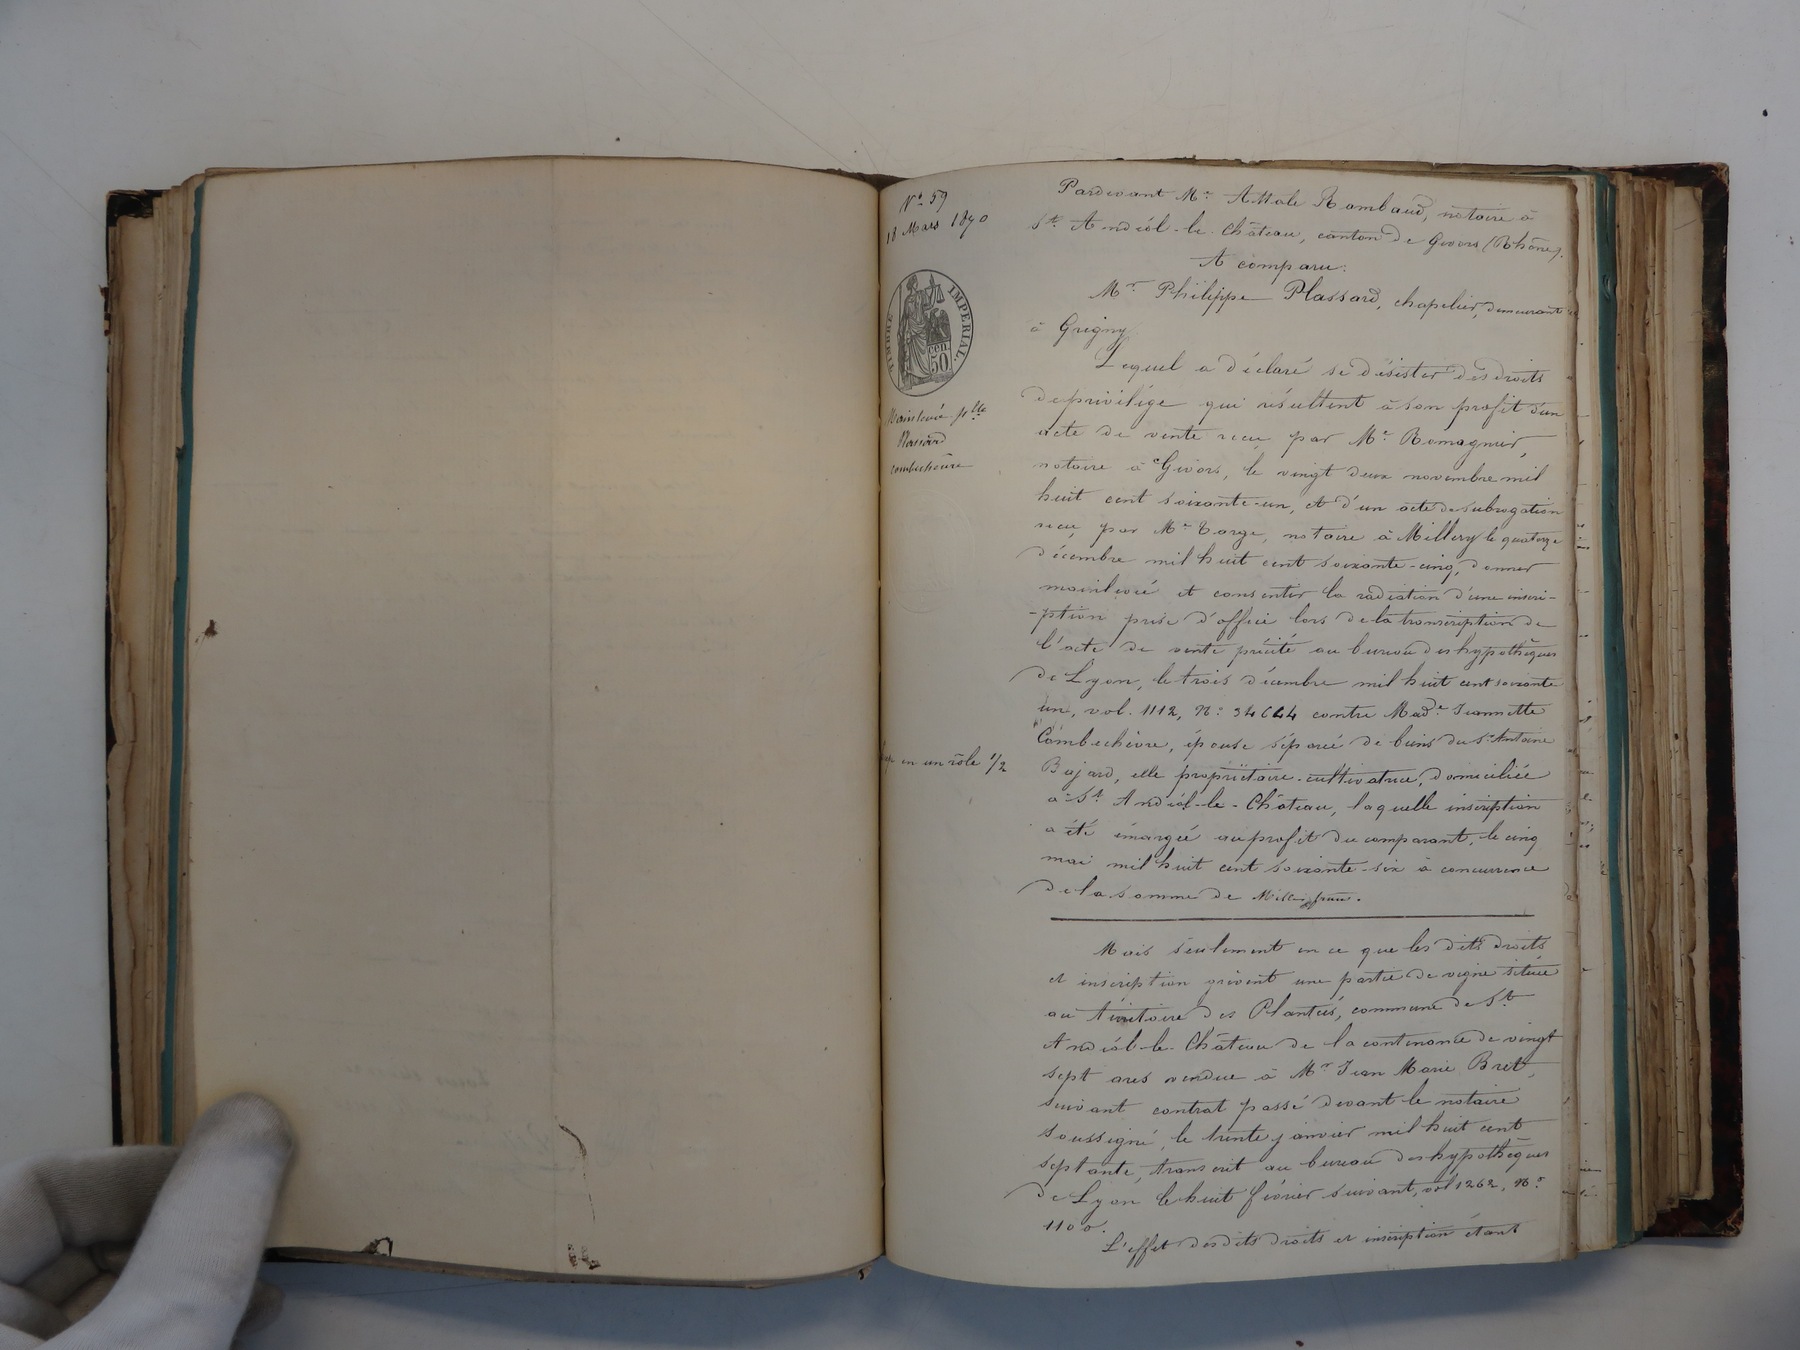 N° 59
18 Mars 1870
TIMBRE IMPERIAL.
cen.
50
Mainlevée plle
Plassard
Combechèvre
Exp en un rôle 1/2
Pardevant Me Attale Rambaud, notaire à
St Andéol-le-Château, canton de Givors (Rhône).
A comparu:
Mr Philippe Plassard, chapelier, demeurant
à Grigny
Lequel a déclaré se désister des droits
de privilége qui résultent à son profit d'un
acte de vente reçu par Me Romagnier,
notaire à Givors, le vingt deux novembre mil
huit cent soixante-un, et d'un acte de subrogation
reçu par Me Targe, notaire à Millery le quatorze
décembre mil huit cent soixante-cinq, donner
mainlevée et consentir la radiation d'une inscri-
-ption prise d'office lors de la transcription de
l'acte de vente précité au bureau des hypothèques
de Lyon, le trois décembre mil huit cent soixante
un, vol. 1112, N° 34644 contre Made Jeannette
Combechèvre, épouse séparée de biens du Sr Antoine
Bajard, elle propriétaire-cultivatrice, domiciliée
à St Andéol-le-Château, laquelle inscription
a été émargée au profit du comparant, le cinq
mai mil huit cent soixante-six à concurrence
de la somme de Mille francs.
Mais seulement en ce que les dits droits
et inscription grèvent une partie de vigne située
au térritoire des Plantées, commune de St
Andéol-le-Château de la contenance de vingt
sept ares vendue à Mr Jean Marie Bret,
suivant contrat passé devant le notaire
soussigné, le trente janvier mil huit cent
septante, transcrit au bureau des hypothèques
de Lyon le huit février suivant, vol 1262, N°
1100.
L'effet desdits droits et inscription étant